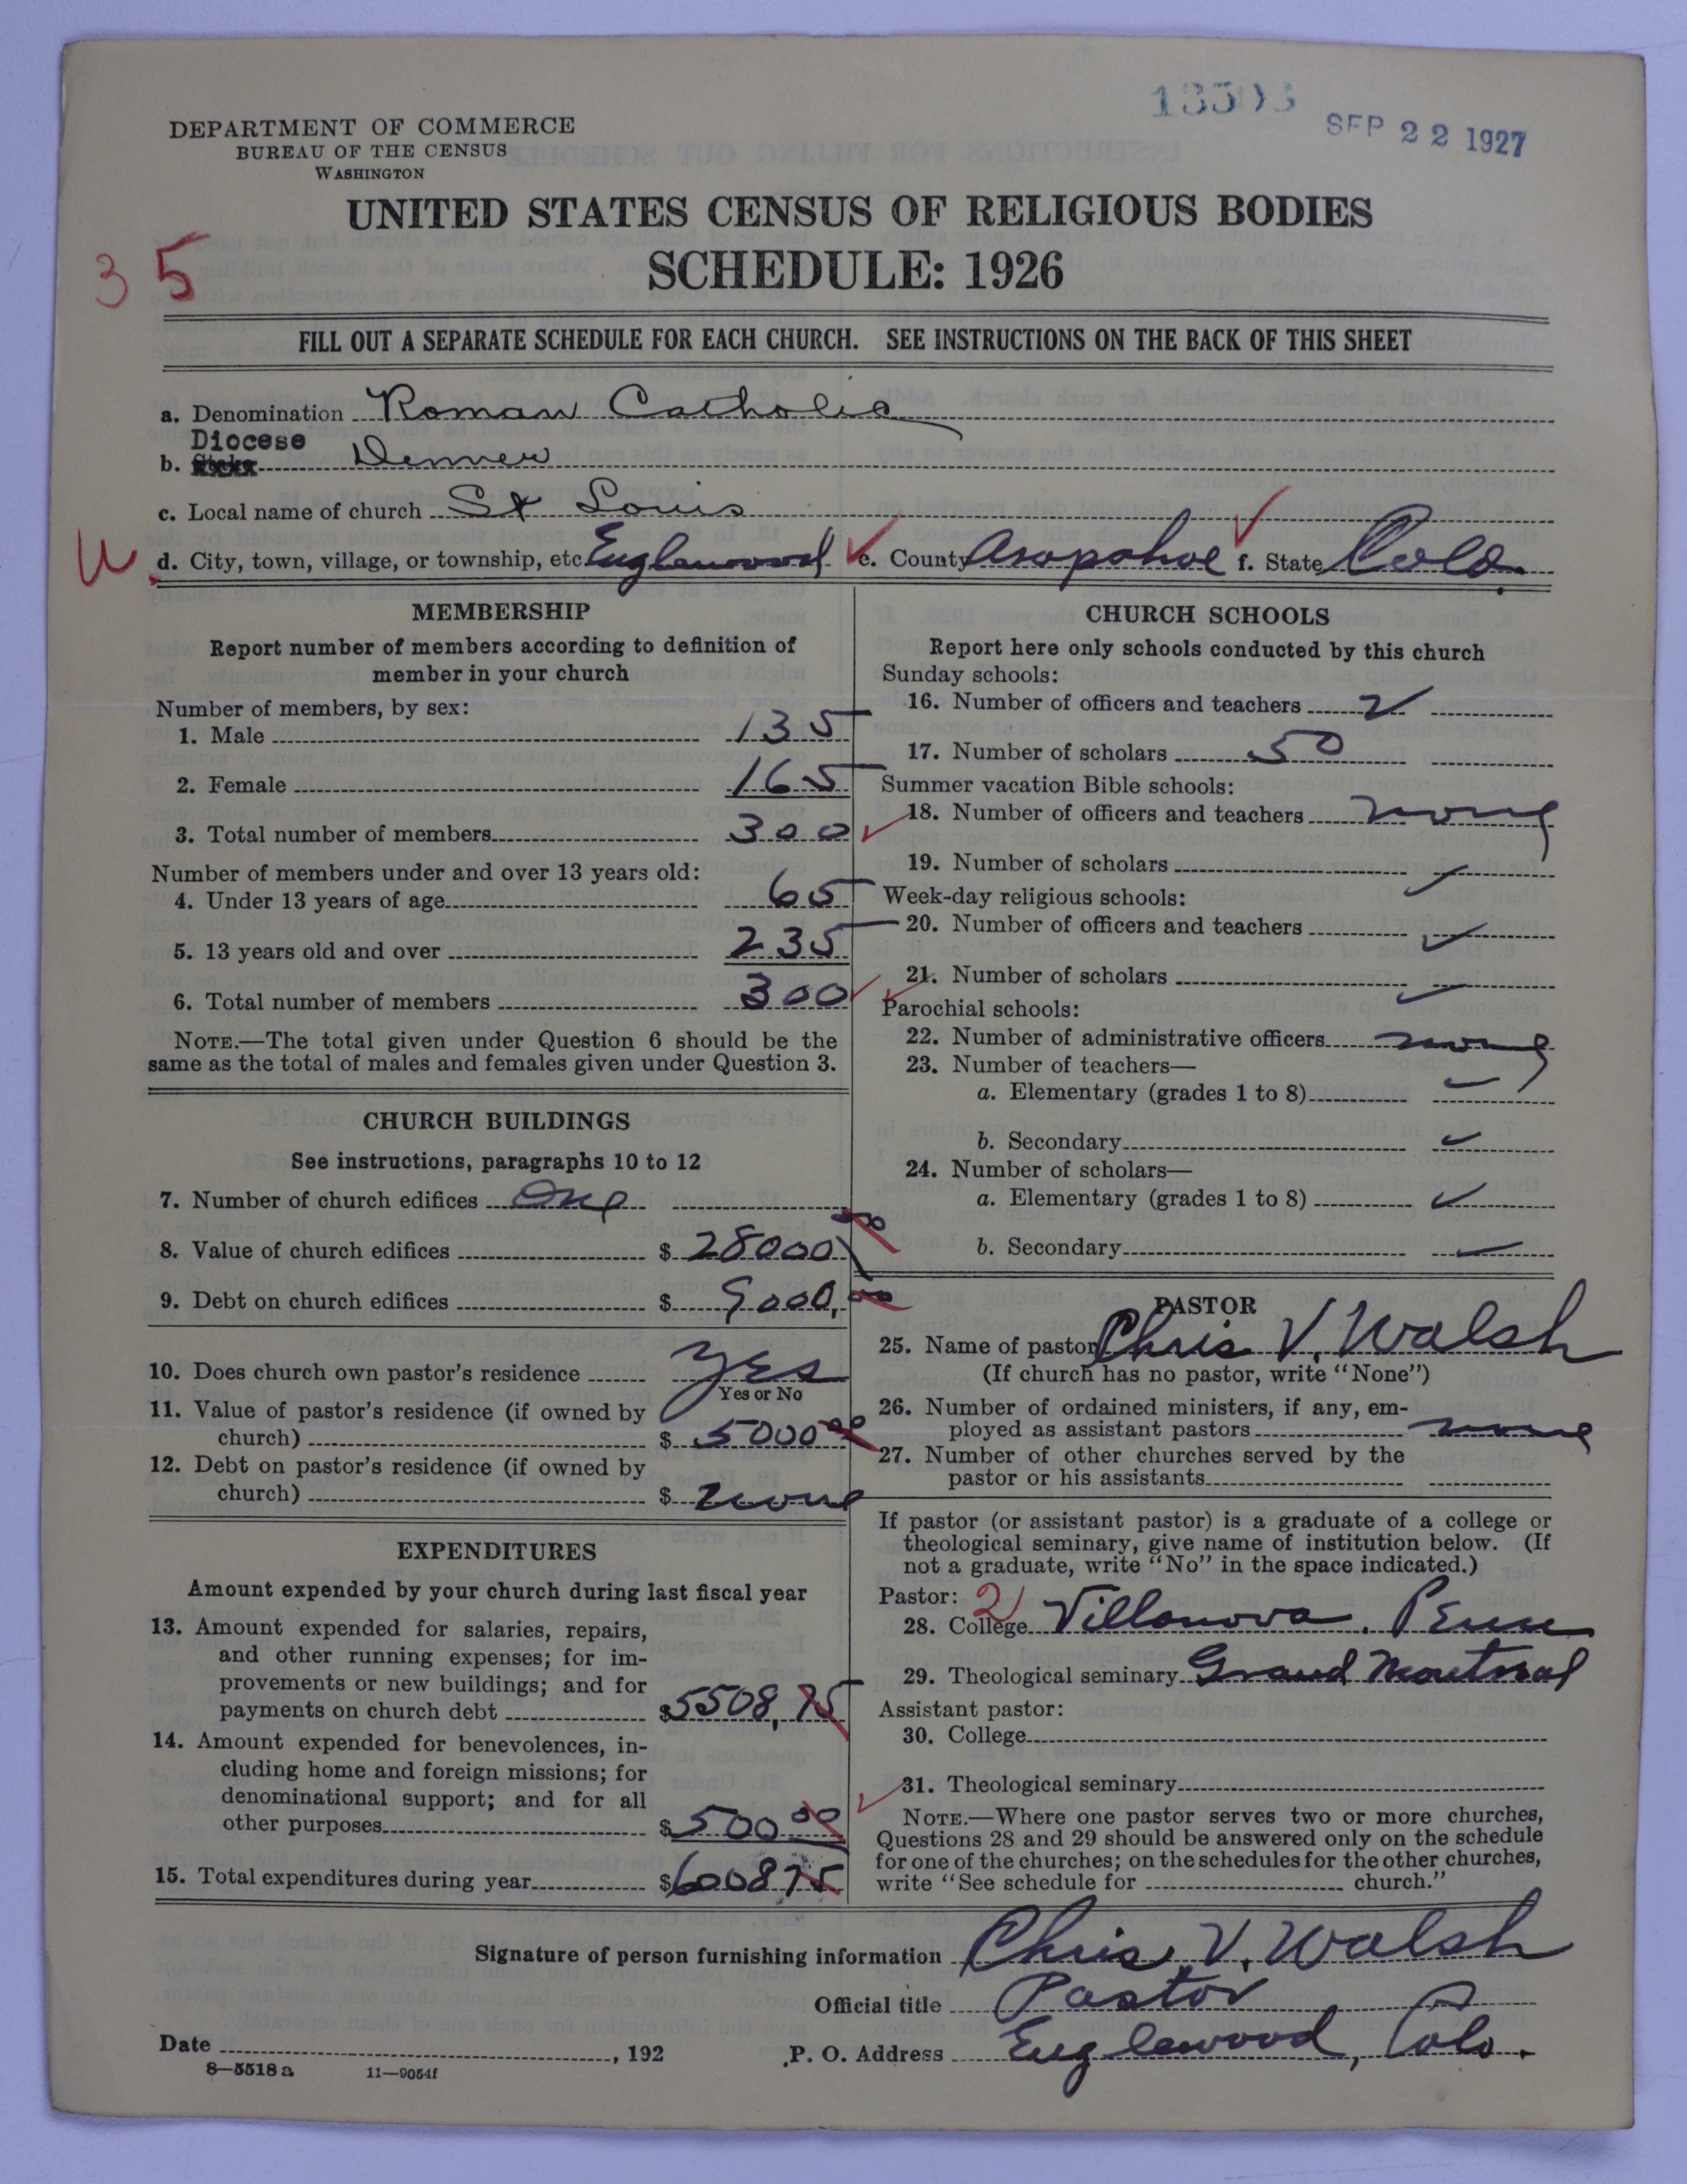 SEP 22 1927
DEPARTMENT OF COMMERCE
BUREAU OF THE CENSUS
WASHINGTON
UNITED STATES CENSUS OF RELIGIOUS BODIES
SCHEDULE: 1926
35
FILL OUT A SEPARATE SCHEDULE FOR EACH CHURCH. SEE INSTRUCTIONS ON THE BACK OF THIS SHEET
a. Denomination Roman Catholic
Diocese
b. Denver
c. Local name of church St Louis
d. City, town, village, or township, etc Englewood e. County Arapahoe f. State Colo.
MEMBERSHIP
Report number of members according to definition of
member in your church
Number of members, by sex:
1. Male 135
2. Female 165
3. Total number of members 300
Number of members under and over 13 years old:
4. Under 13 years of age 65
5. 13 years old and over 235
6. Total number of members 300
NOTE.—The total given under Question 6 should be the
same as the total of males and females given under Question 3.
CHURCH BUILDINGS
See instructions, paragraphs 10 to 12
7. Number of church edifices One
8. Value of church edifices $ 28000 00
9. Debt on church edifices $ 9000, 00
10. Does church own pastor's residence Yes
Yes or No
11. Value of pastor's residence (if owned by
church) $ 5000 00
12. Debt on pastor's residence (if owned by
church) $ none
EXPENDITURES
Amount expended by your church during last fiscal year
13. Amount expended for salaries, repairs,
and other running expenses; for im-
provements or new buildings; and for
payments on church debt $5508,75
14. Amount expended for benevolences, in-
cluding home and foreign missions; for
denominational support; and for all
other purposes $500 00
15. Total expenditures during year $6008 75
CHURCH SCHOOLS
Report here only schools conducted by this church
Sunday schools:
16. Number of officers and teachers 2
17. Number of scholars 50
Summer vacation Bible schools:
18. Number of officers and teachers none
19. Number of scholars
Week-day religious schools:
20. Number of officers and teachers
21. Number of scholars
Parochial schools:
22. Number of administrative officers none
23. Number of teachers—
a. Elementary (grades 1 to 8)
b. Secondary
24. Number of scholars—
a. Elementary (grades 1 to 8)
b. Secondary
PASTOR
25. Name of pastor Chris V. Walsh
(If church has no pastor, write "None")
26. Number of ordained ministers, if any, em-
ployed as assistant pastors none
27. Number of other churches served by the
pastor or his assistants
If pastor (or assistant pastor) is a graduate of a college or
theological seminary, give name of institution below. (If
not a graduate, write "No" in the space indicated.)
Pastor: 2
28. College Villanova. Penn
29. Theological seminary Grand Montreal
Assistant pastor:
30. College
31. Theological seminary
NOTE.—Where one pastor serves two or more churches,
Questions 28 and 29 should be answered only on the schedule
for one of the churches; on the schedules for the other churches,
write "See schedule for church."
Signature of person furnishing information Chris. V. Walsh
Official title Pastor
Date , 192 P. O. Address Englewood, Colo.
8—5518a 11—9054f